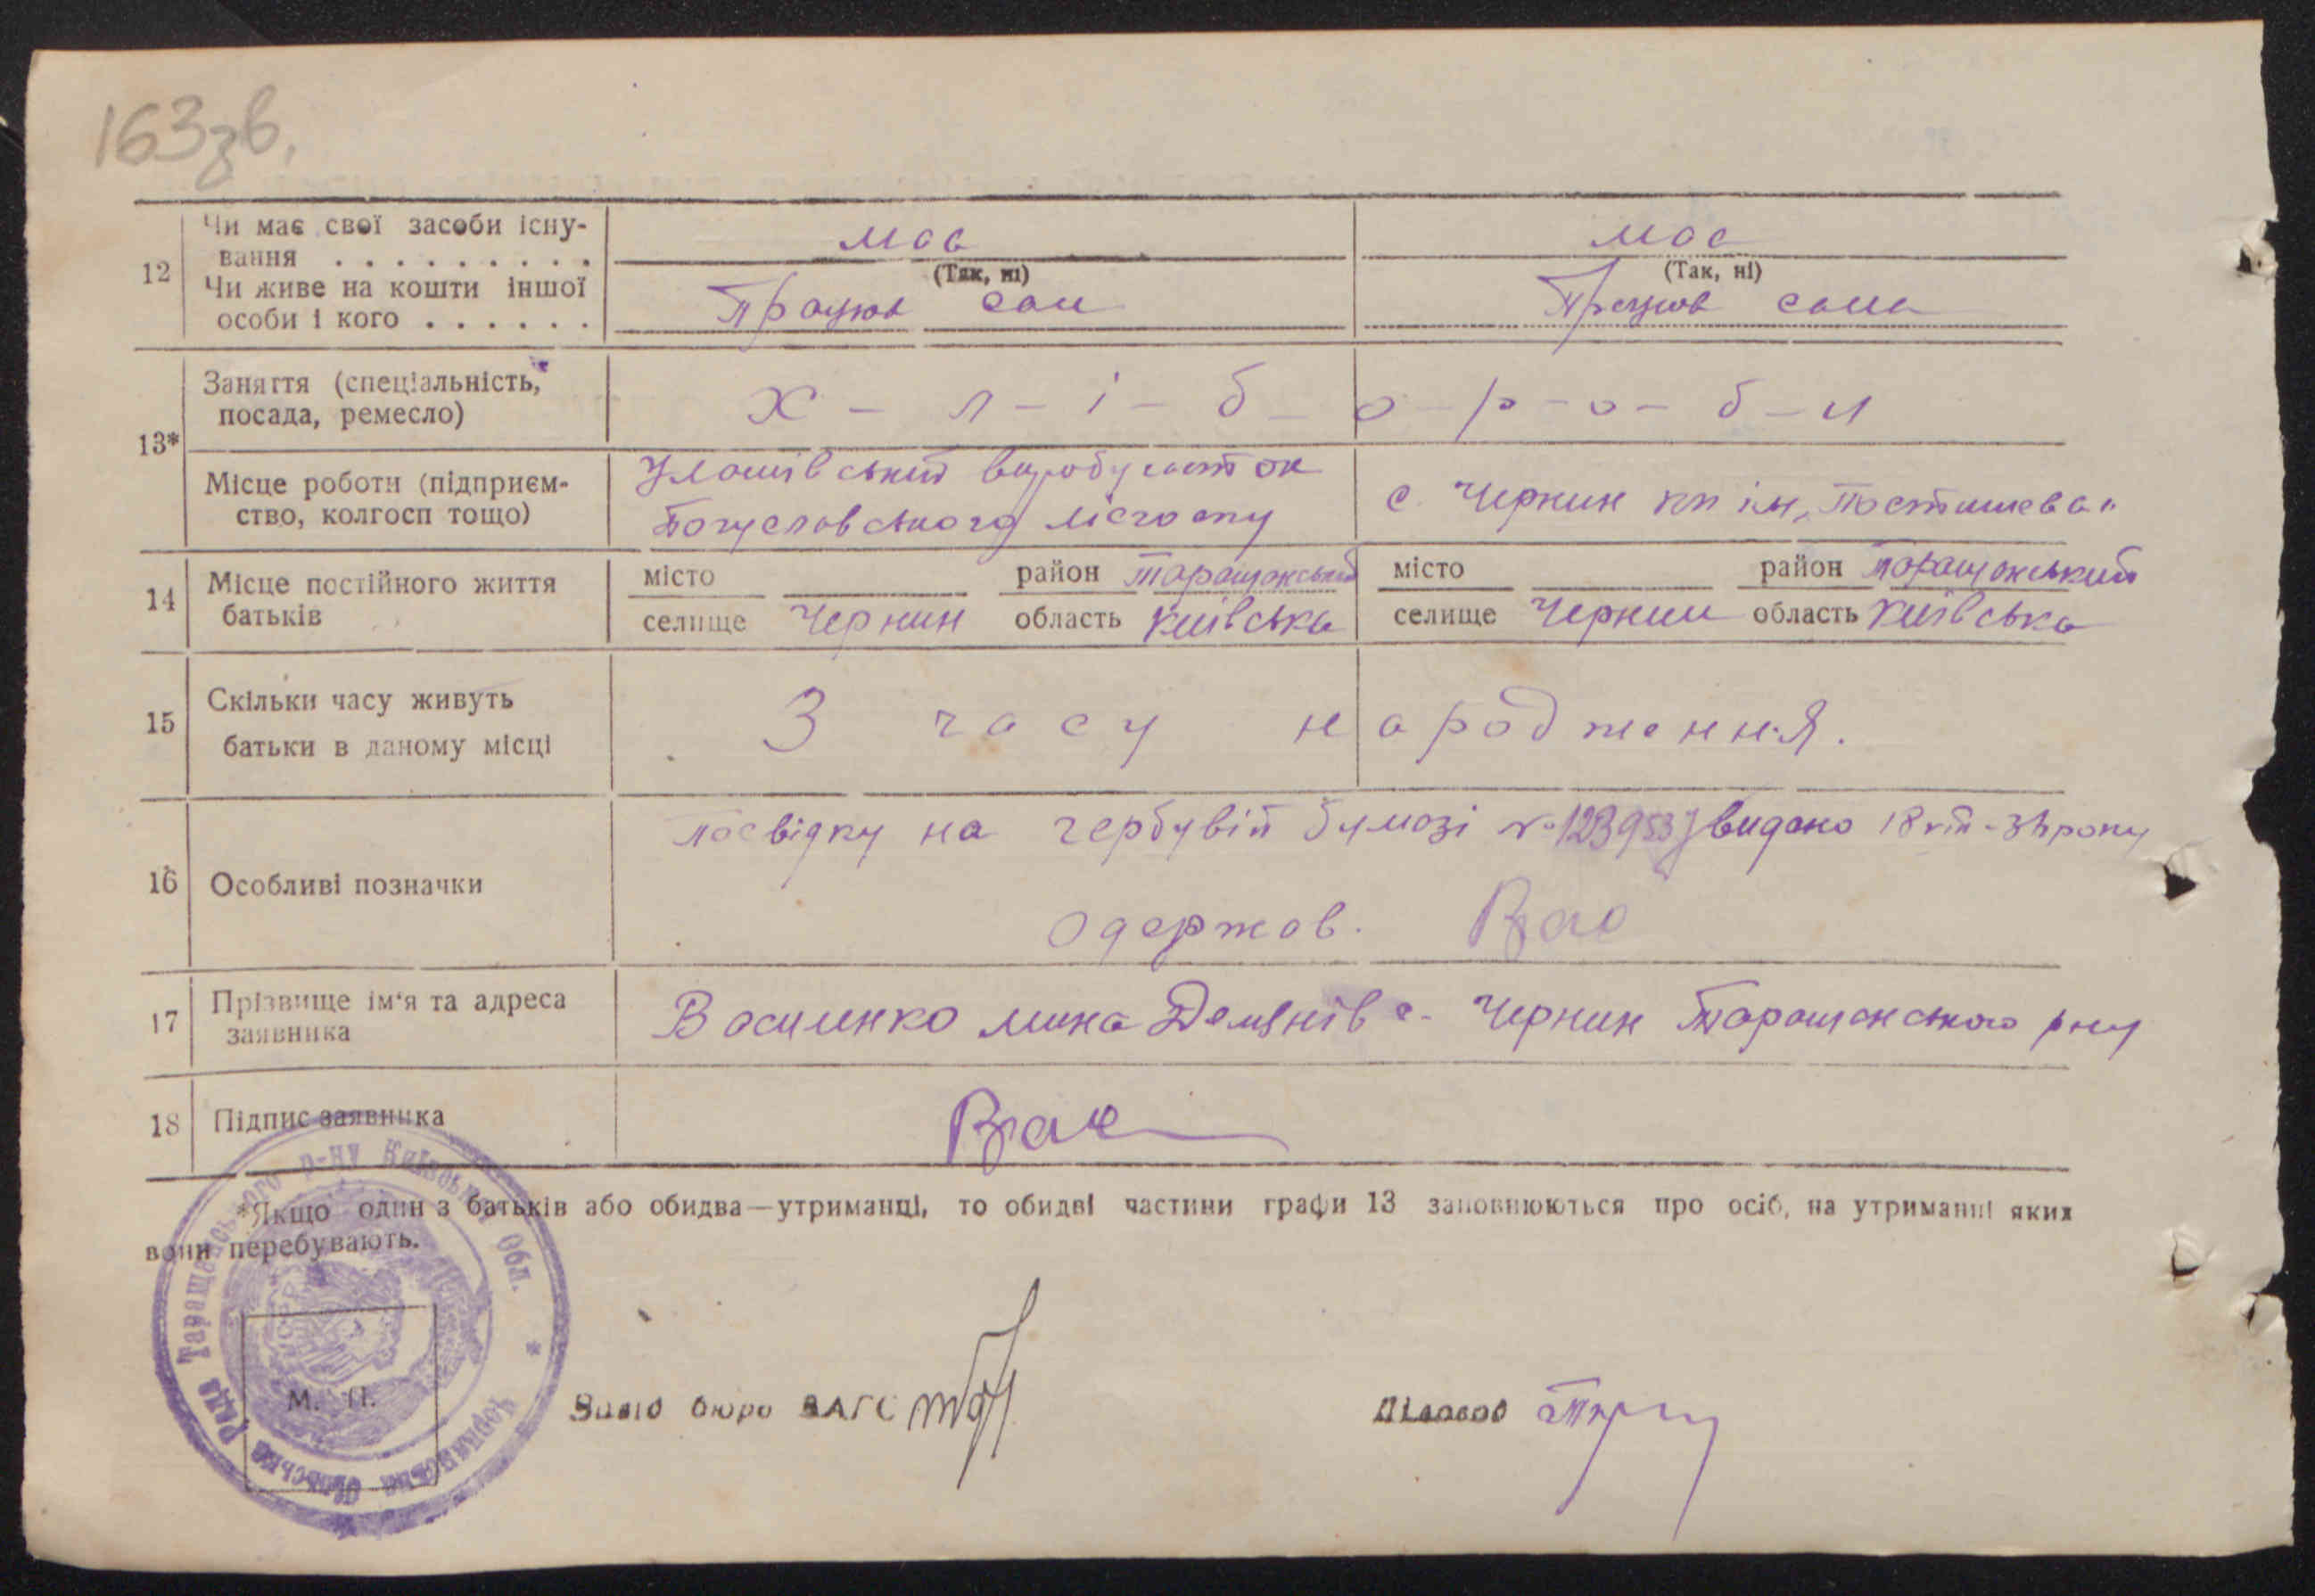 163зв.
12 Чи має свої засоби існу- має має
вання . . . . . . . . . (Так, ні) (Так, ні)
Чи живе на кошти іншої Працює сам Працює сама
особи і кого . . . . . .
13* Заняття (спеціальність, посада, ремесло) х - л - і - б - о - р - о - б - и
Місце роботи (підприєм-
ство, колгосп тощо)
Богуславського лісгоспу
с. Чернин кп ім. "Постишева"
14 Місце постійного життя
батьків
місто район Таращанський місто район Таращанський
селище Чернин область Київська селище Чернин область Київська
15 Скільки часу живуть
батьки в даному місці
З часу народження.
16 Особливі позначки
посвідку на гербувій бумазі № видано 18
одержав.
17 Прізвище ім'я та адреса
заявника
Василенко Мина Демянів с. Чернин Таращанського р-ну
18 Підпис заявника
*Якщо один з батьків або обидва—утриманці, то обидві частини графи 13 заповнюються про осіб, на утриманні яких
вони перебувають.
Таращанського р-ну Київської Обл. * Сільська Рада
М. П.
Завід бюро ЗАГС
Діловод